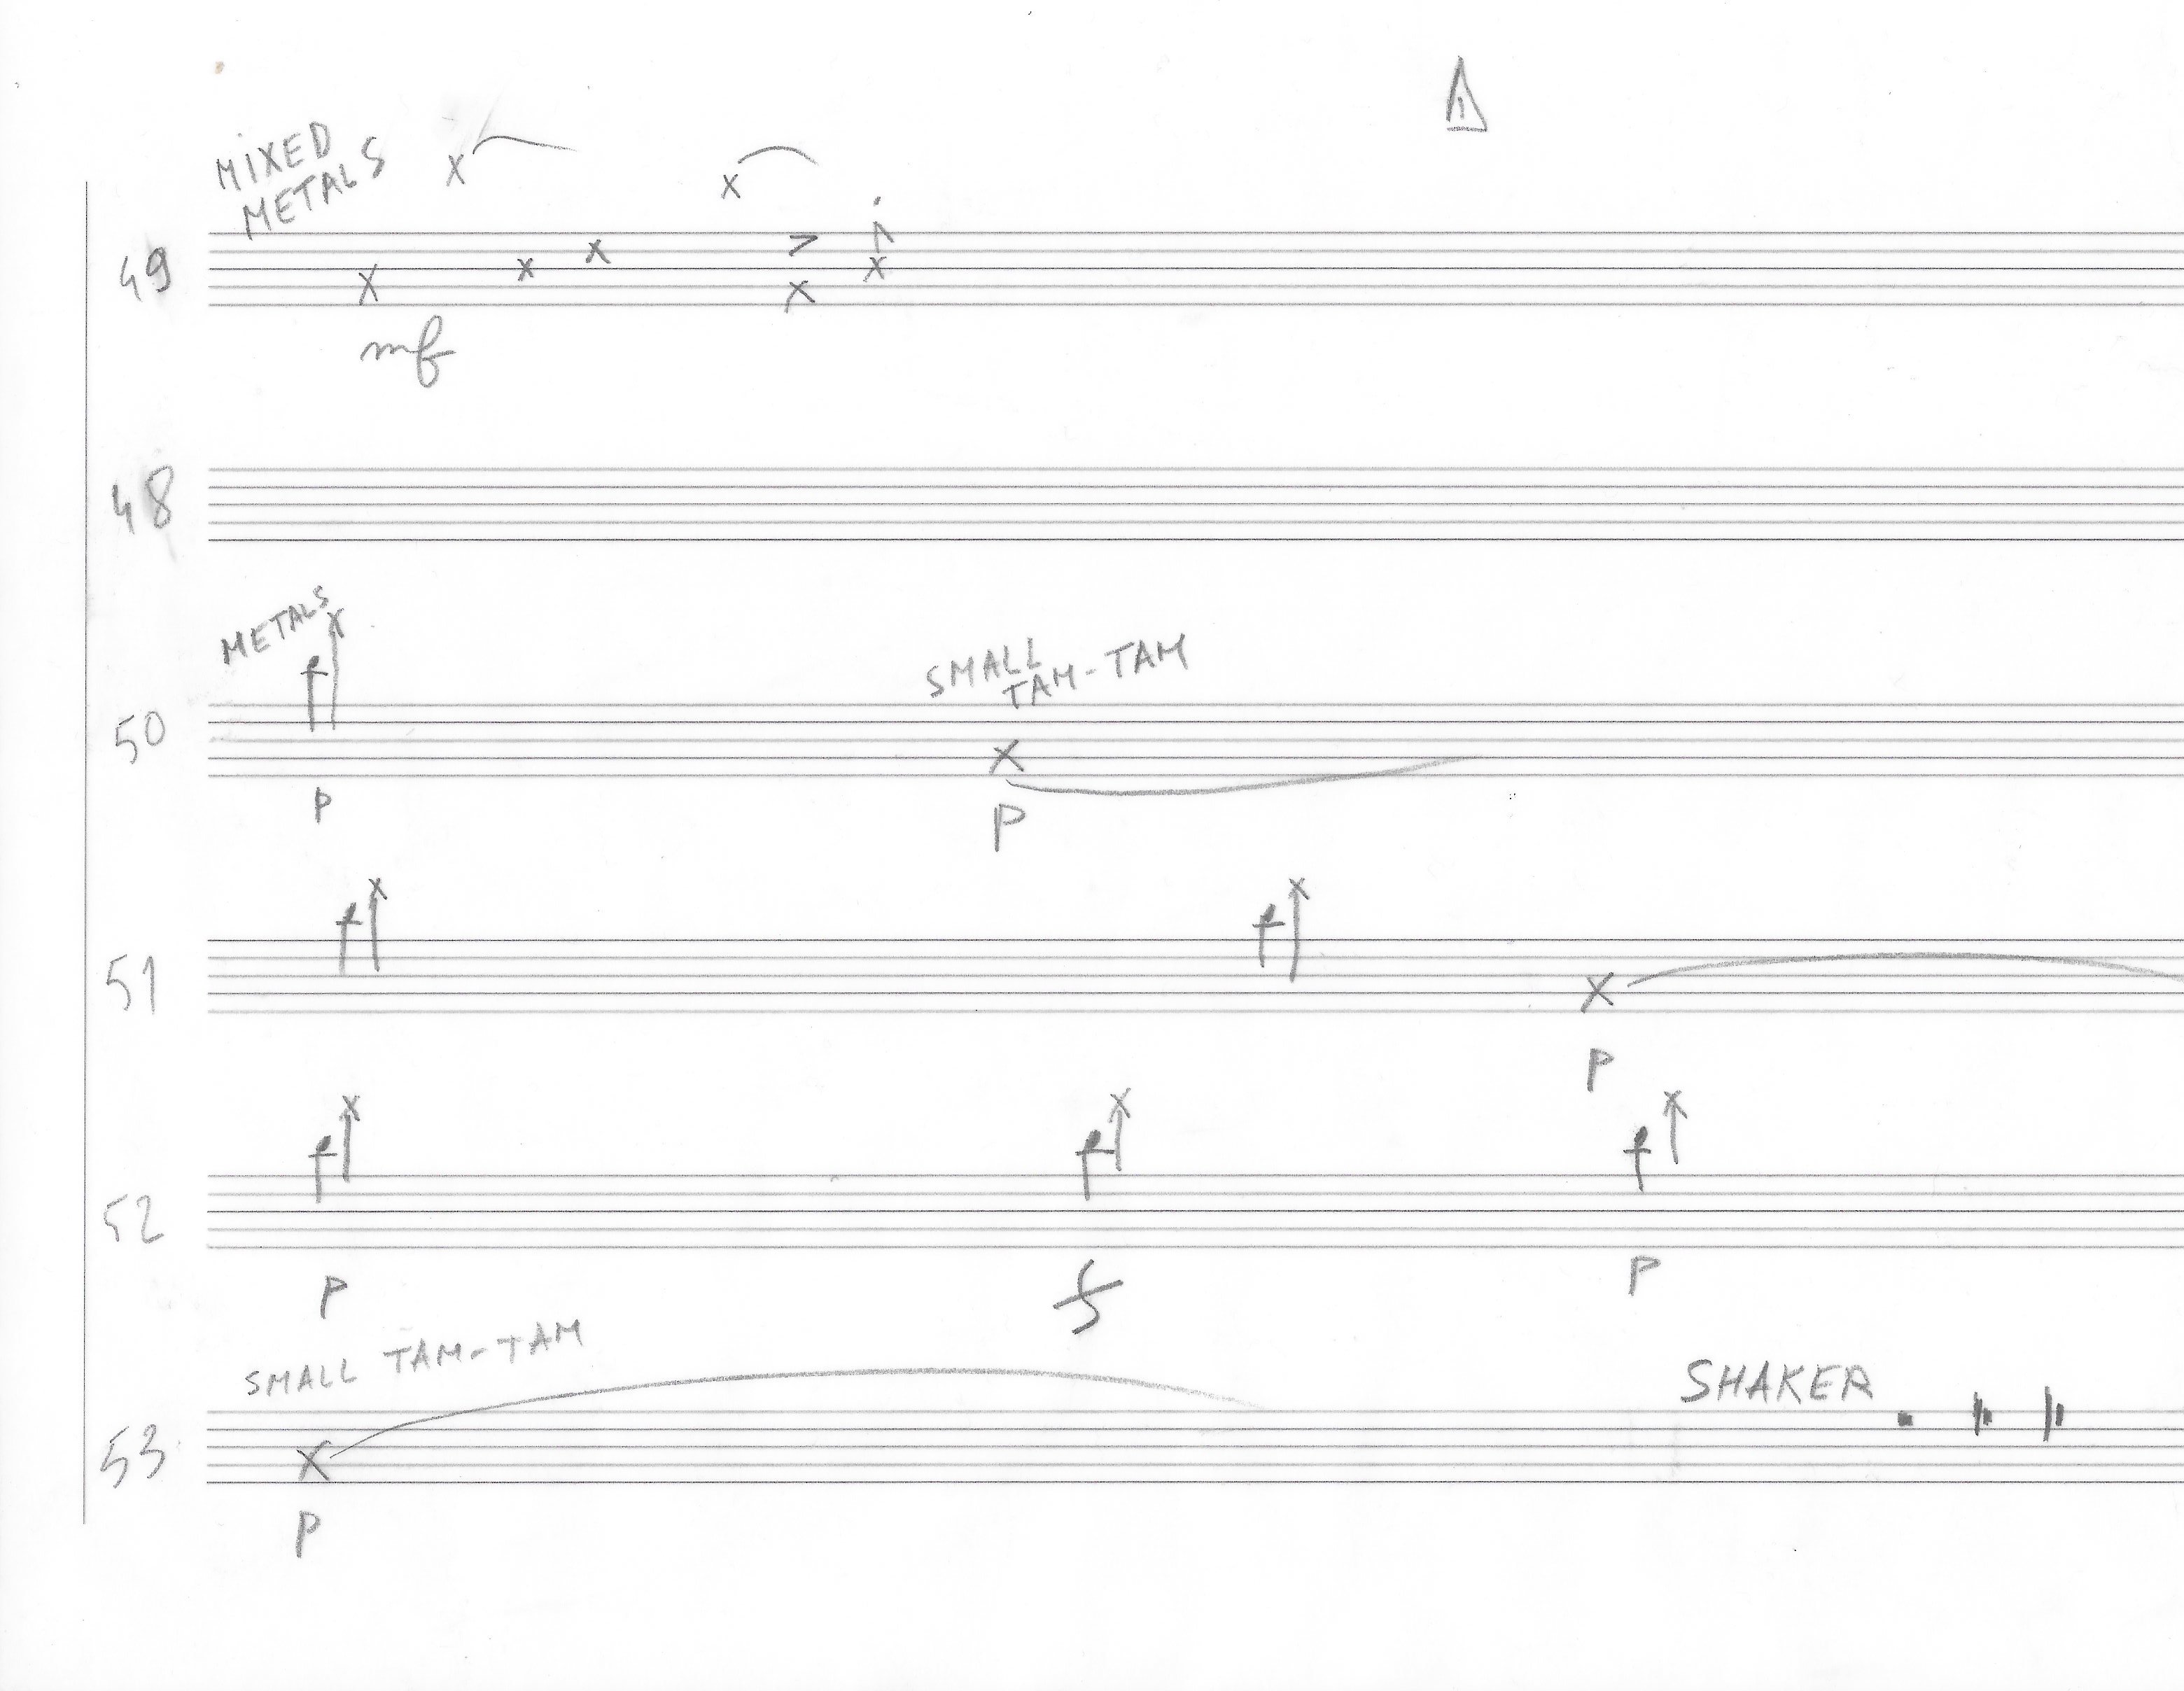 MIXED
METALS
49
mf
48
METALS
50
P
SMALL
TAM-TAM
P
51
P
52
P
f
P
SMALL TAM-TAM
SHAKER
53
P